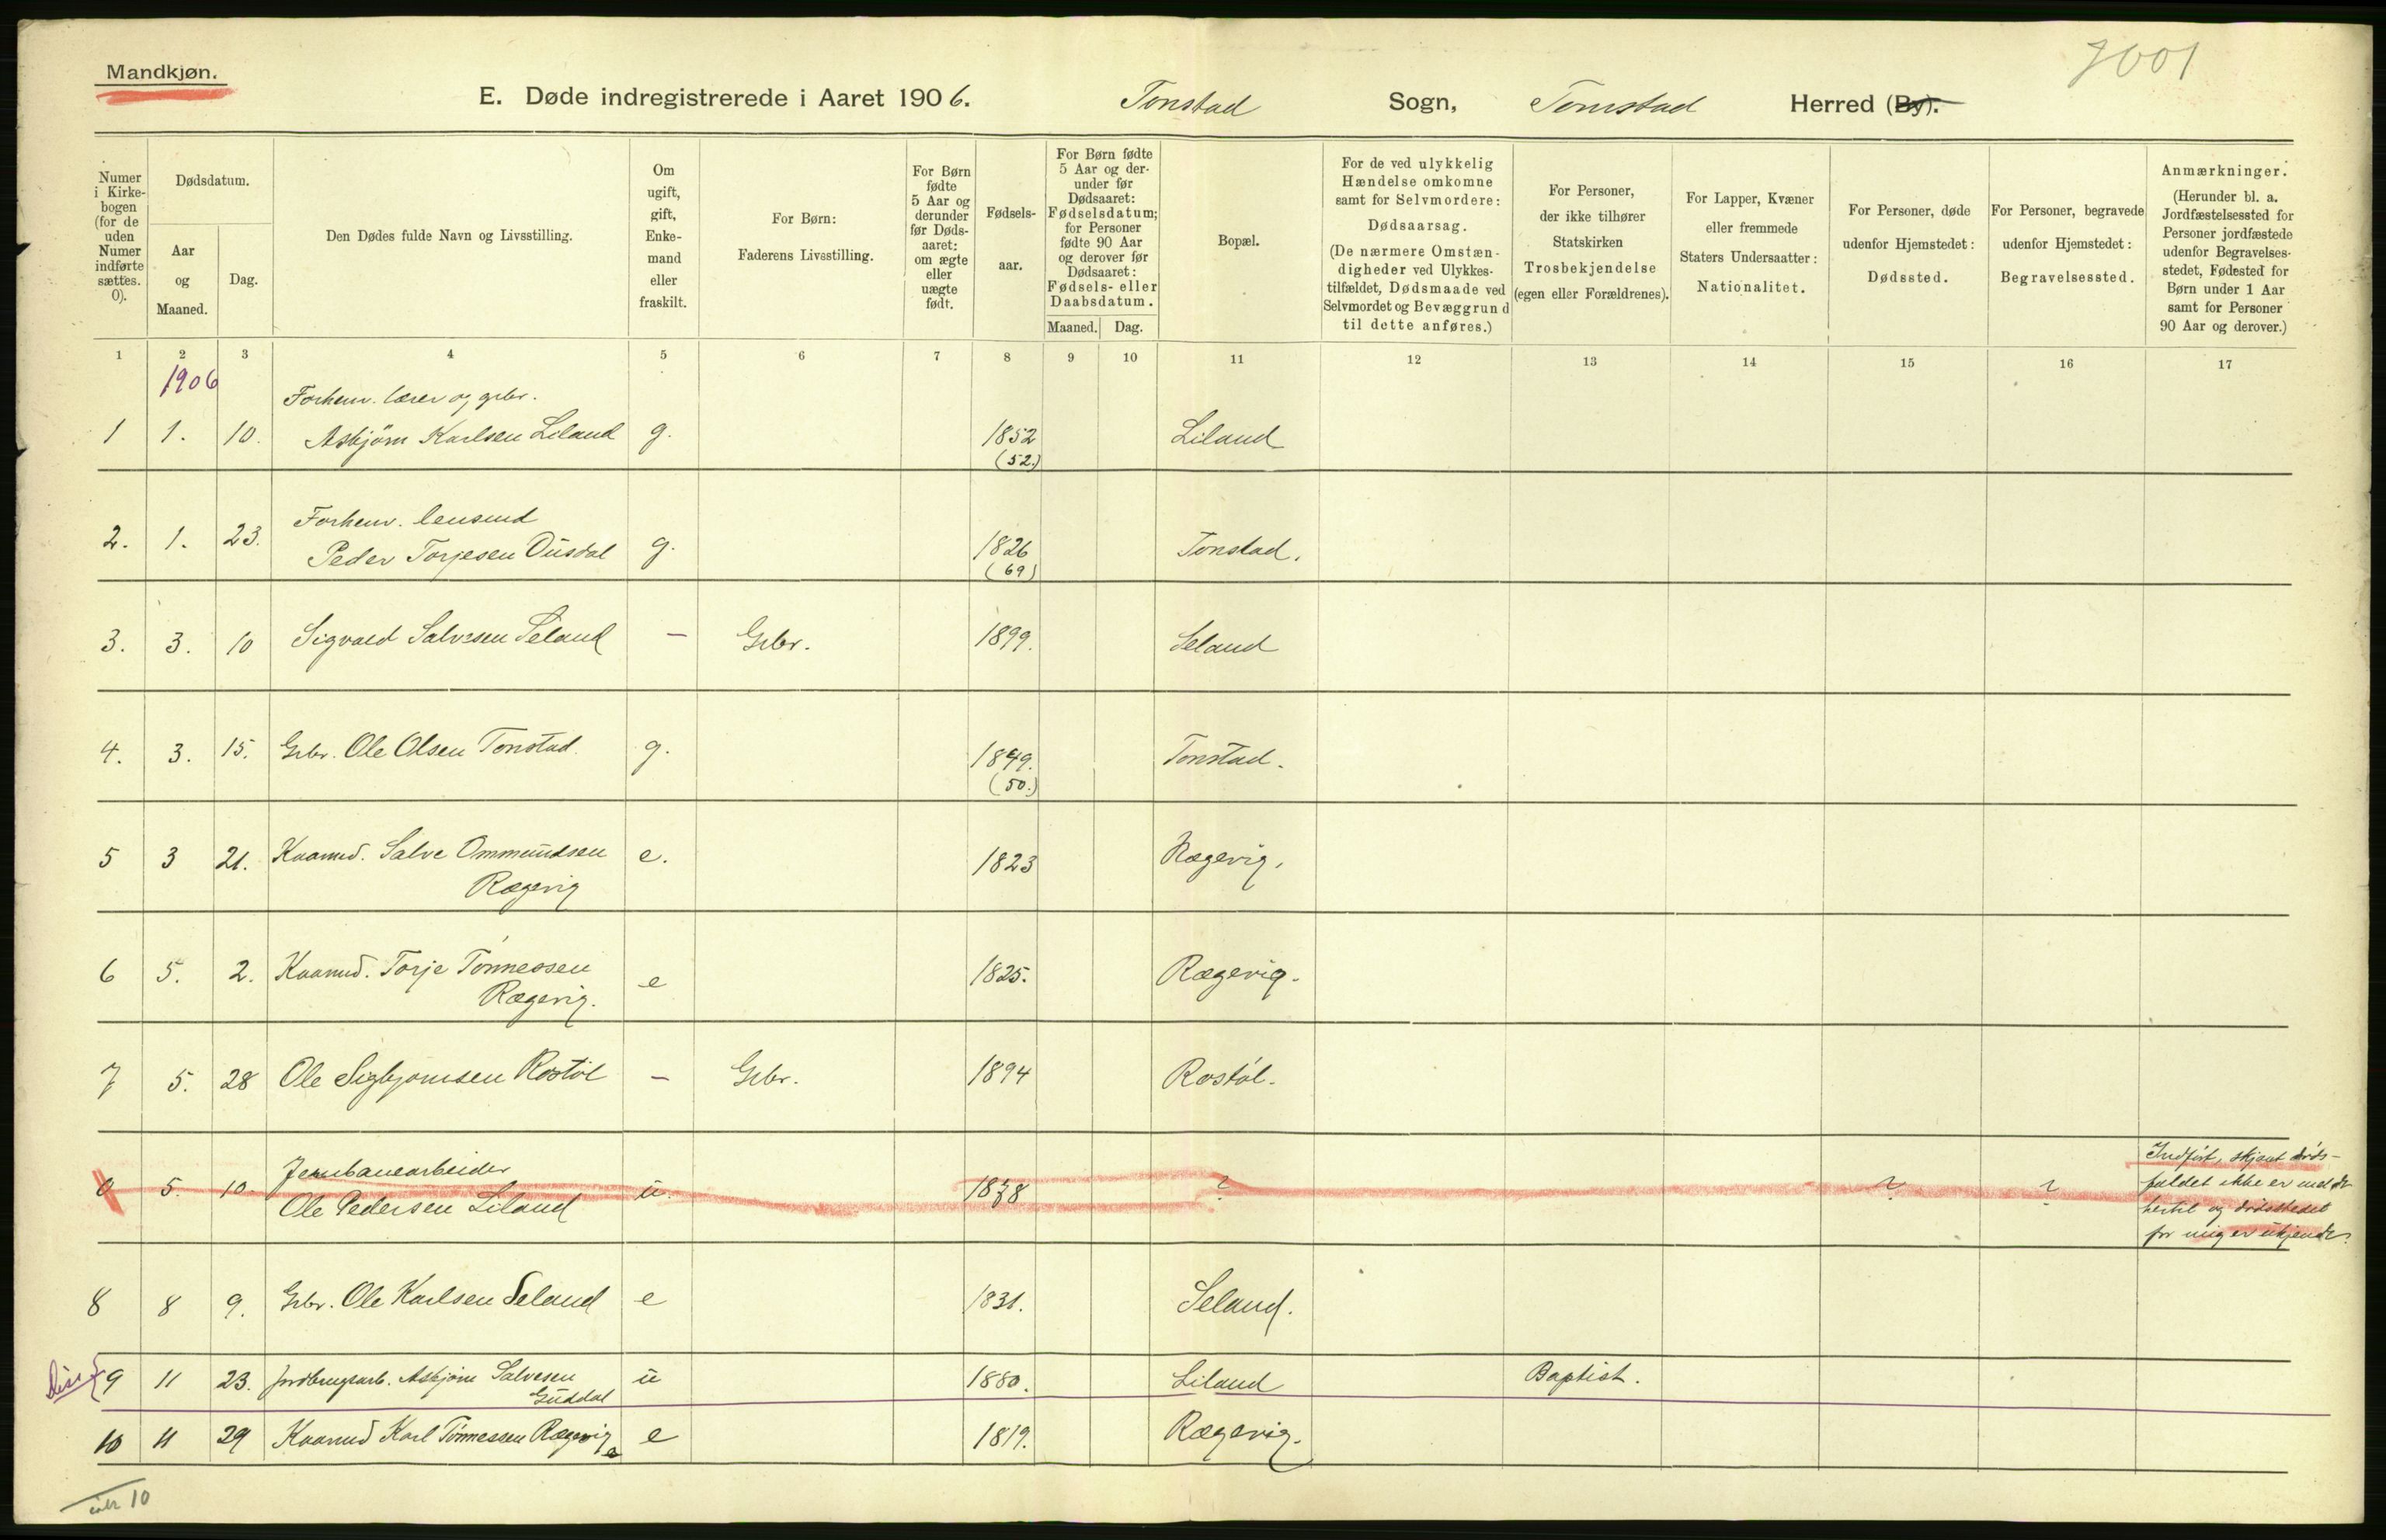 7001
Mandkjøn.
E. Døde indregistrerede i Aaret 1906. Tonstad Sogn, Tonstad Herred (By).
Numer i Kirke-bogen (for de uden Numer indførte sættes. 0).
Dødsdatum.
Aar og Maaned.
Dag.
Den Dødes fulde Navn og Livsstilling.
Om ugift, gift, Enke-mand eller fraskilt.
For Børn: Faderens Livsstilling.
For Børn fødte 5 Aar og derunder før Døds-aaret: om ægte eller uægte født.
Fødsels-aar.
For Børn fødte 5 Aar og der-under før Dødsaaret: Fødselsdatum; for Personer fødte 90 Aar og derover før Dødsaaret: Fødsels- eller Daabsdatum.
Maaned. Dag.
Bopæl.
For de ved ulykkelig Hændelse omkomne samt for Selvmordere: Dødsaarsag. (De nærmere Omstæn-digheder ved Ulykkes-tilfældet, Dødsmaade ved Selvmordet og Bevæggrund til dette anføres.)
For Personer, der ikke tilhører Statskirken Trosbekjendelse (egen eller Forældrenes).
For Lapper, Kvæner eller fremmede Staters Undersaatter: Nationalitet.
For Personer, døde udenfor Hjemstedet: Dødssted.
For Personer, begravede udenfor Hjemstedet: Begravelsessted.
Anmærkninger. (Herunder bl. a. Jordfæstelsessted for Personer jordfæstede udenfor Begravelses-stedet, Fødested for Børn under 1 Aar samt for Personer 90 Aar og derover.)
1 2 3 4 5 6 7 8 9 10 11 12 13 14 15 16 17
1906
Forhenv. lærer og grbr.
1 1. 10. Asbjörn Karlsen Liland g. 1852 Liland
(52.)
Forhenv. lensmd
2. 1. 23. Peder Torjesen Ousdal g. 1826 Tonstad.
(69)
3. 3. 10 Sigvald Salvesen Seland — Grbr. 1899. Seland
4. 3. 15. Grbr. Ole Olsen Tonstad g. 1849. Tonstad.
(50.)
5 3 21. Kaarmd. Salve Ommundsen e. 1823 Rægevig.
Rægevig
6 5. 2. Kaarmd. Torje Tönnessen e 1825. Rægevig.
Rægevig.
7 5. 28 Ole Sigbjørnsen Røstöl — Grbr. 1894 Røstöl.
Jernbanearbeider
0 5. 10. Ole Pedersen Liland u. 1878 ? ? ?
Indført, skjønt döds-
faldet ikke er meldt
hertil og dödsstedet
for mig er ukjendt.
8 8 9. Grbr. Ole Karlsen Seland e 1831. Seland.
Diss. 9 11 23. jordbrugsarb. Asbjørn Salvesen u 1880. Liland Baptist.
Guddal
10 11 29 Kaarmd Karl Tönnessen Rægevig e 1819. Rægevig.
10